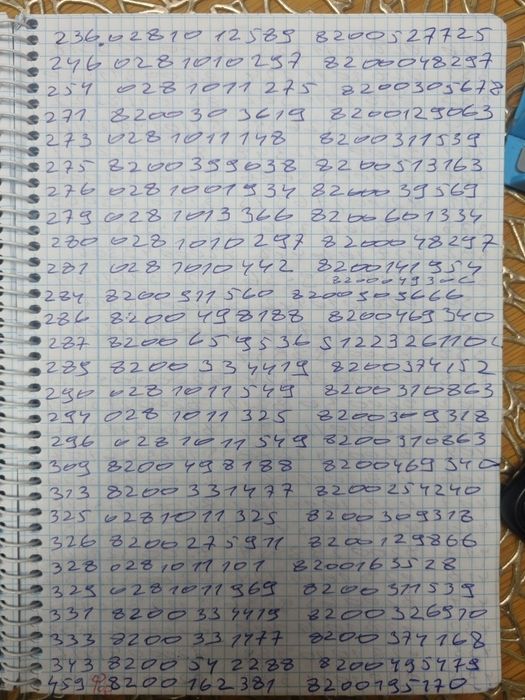 236. 0281012589 8200527725
246 0281010297 8200048297
254 0281011275 8200305678
271 8200303619 8200129063
273 0281011148 8200311539
275 8200399038 8200513163
276 0281001934 8200039569
279 0281013366 8200601334
280 0281010297 8200048297
281 0281010442 8200141954
284 8200911560 8200909666
286 8200498188 8200469340
287 8200659536
289 8200334419 8200374152
290 0281011549 8200310863
294 0281011325 8200309318
296 0281011549 8200310863
309 8200498188 8200469340
313 8200331477 8200254240
325 0281011325 8200309318
326 8200275911 8200129866
328 0281011101 8200163528
329 0281011969 8200311539
331 8200334419 8200326910
333 8200331477 8200374168
343 8200542288 8200495479
459 8200162381 8200195170